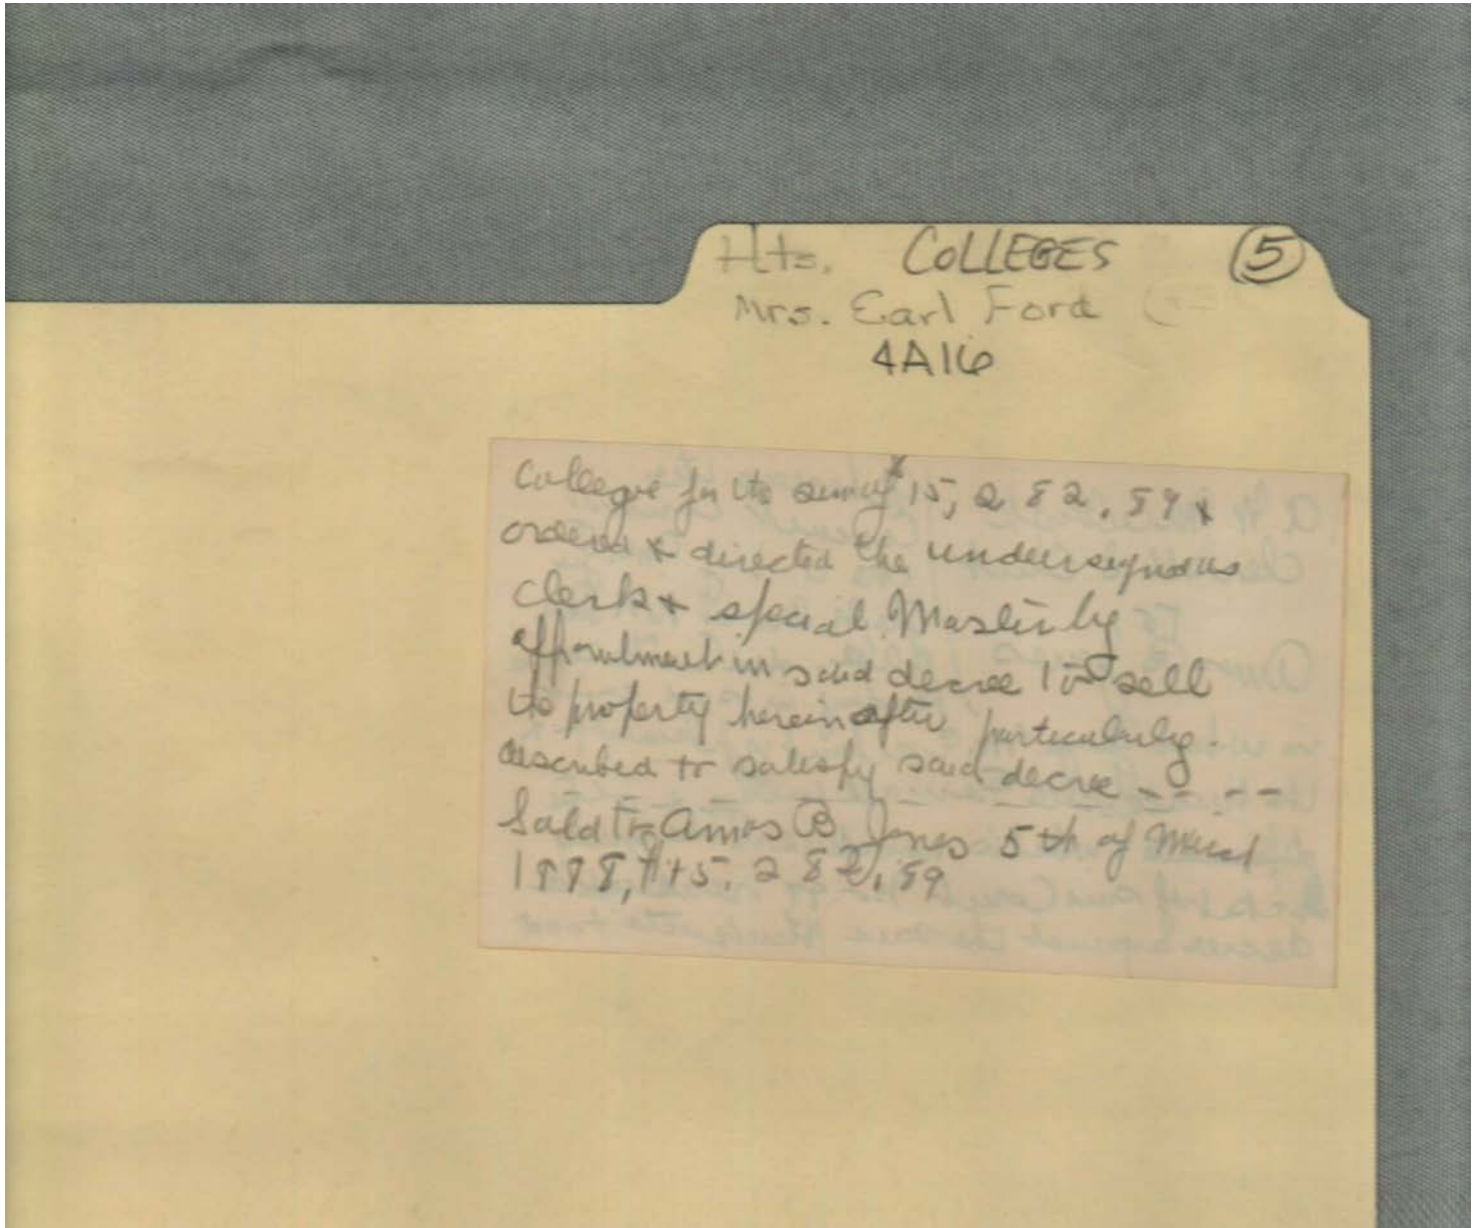 Hts. COLLEGES 5
Mrs. Earl Ford
4A16
College for the sum of $15,282.89 &
ordered & directed the undersigned as
clerk & special Master by
appointment in said decree to sell
the property hereinafter particularly
described to satisfy said decree - - - -
Sold to Amos B Jones 5th of
1878, $15,282,89